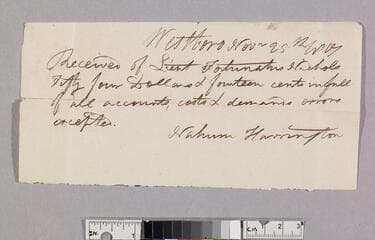 Westboro Nov 25th 1807
Received of Lieut Fortunatus Nichols
fifty four Dollars & fourteen cents in full
of all accounts costs & demands errors
excepted.
Nahum Harrington
IN.
CM
1
2
3